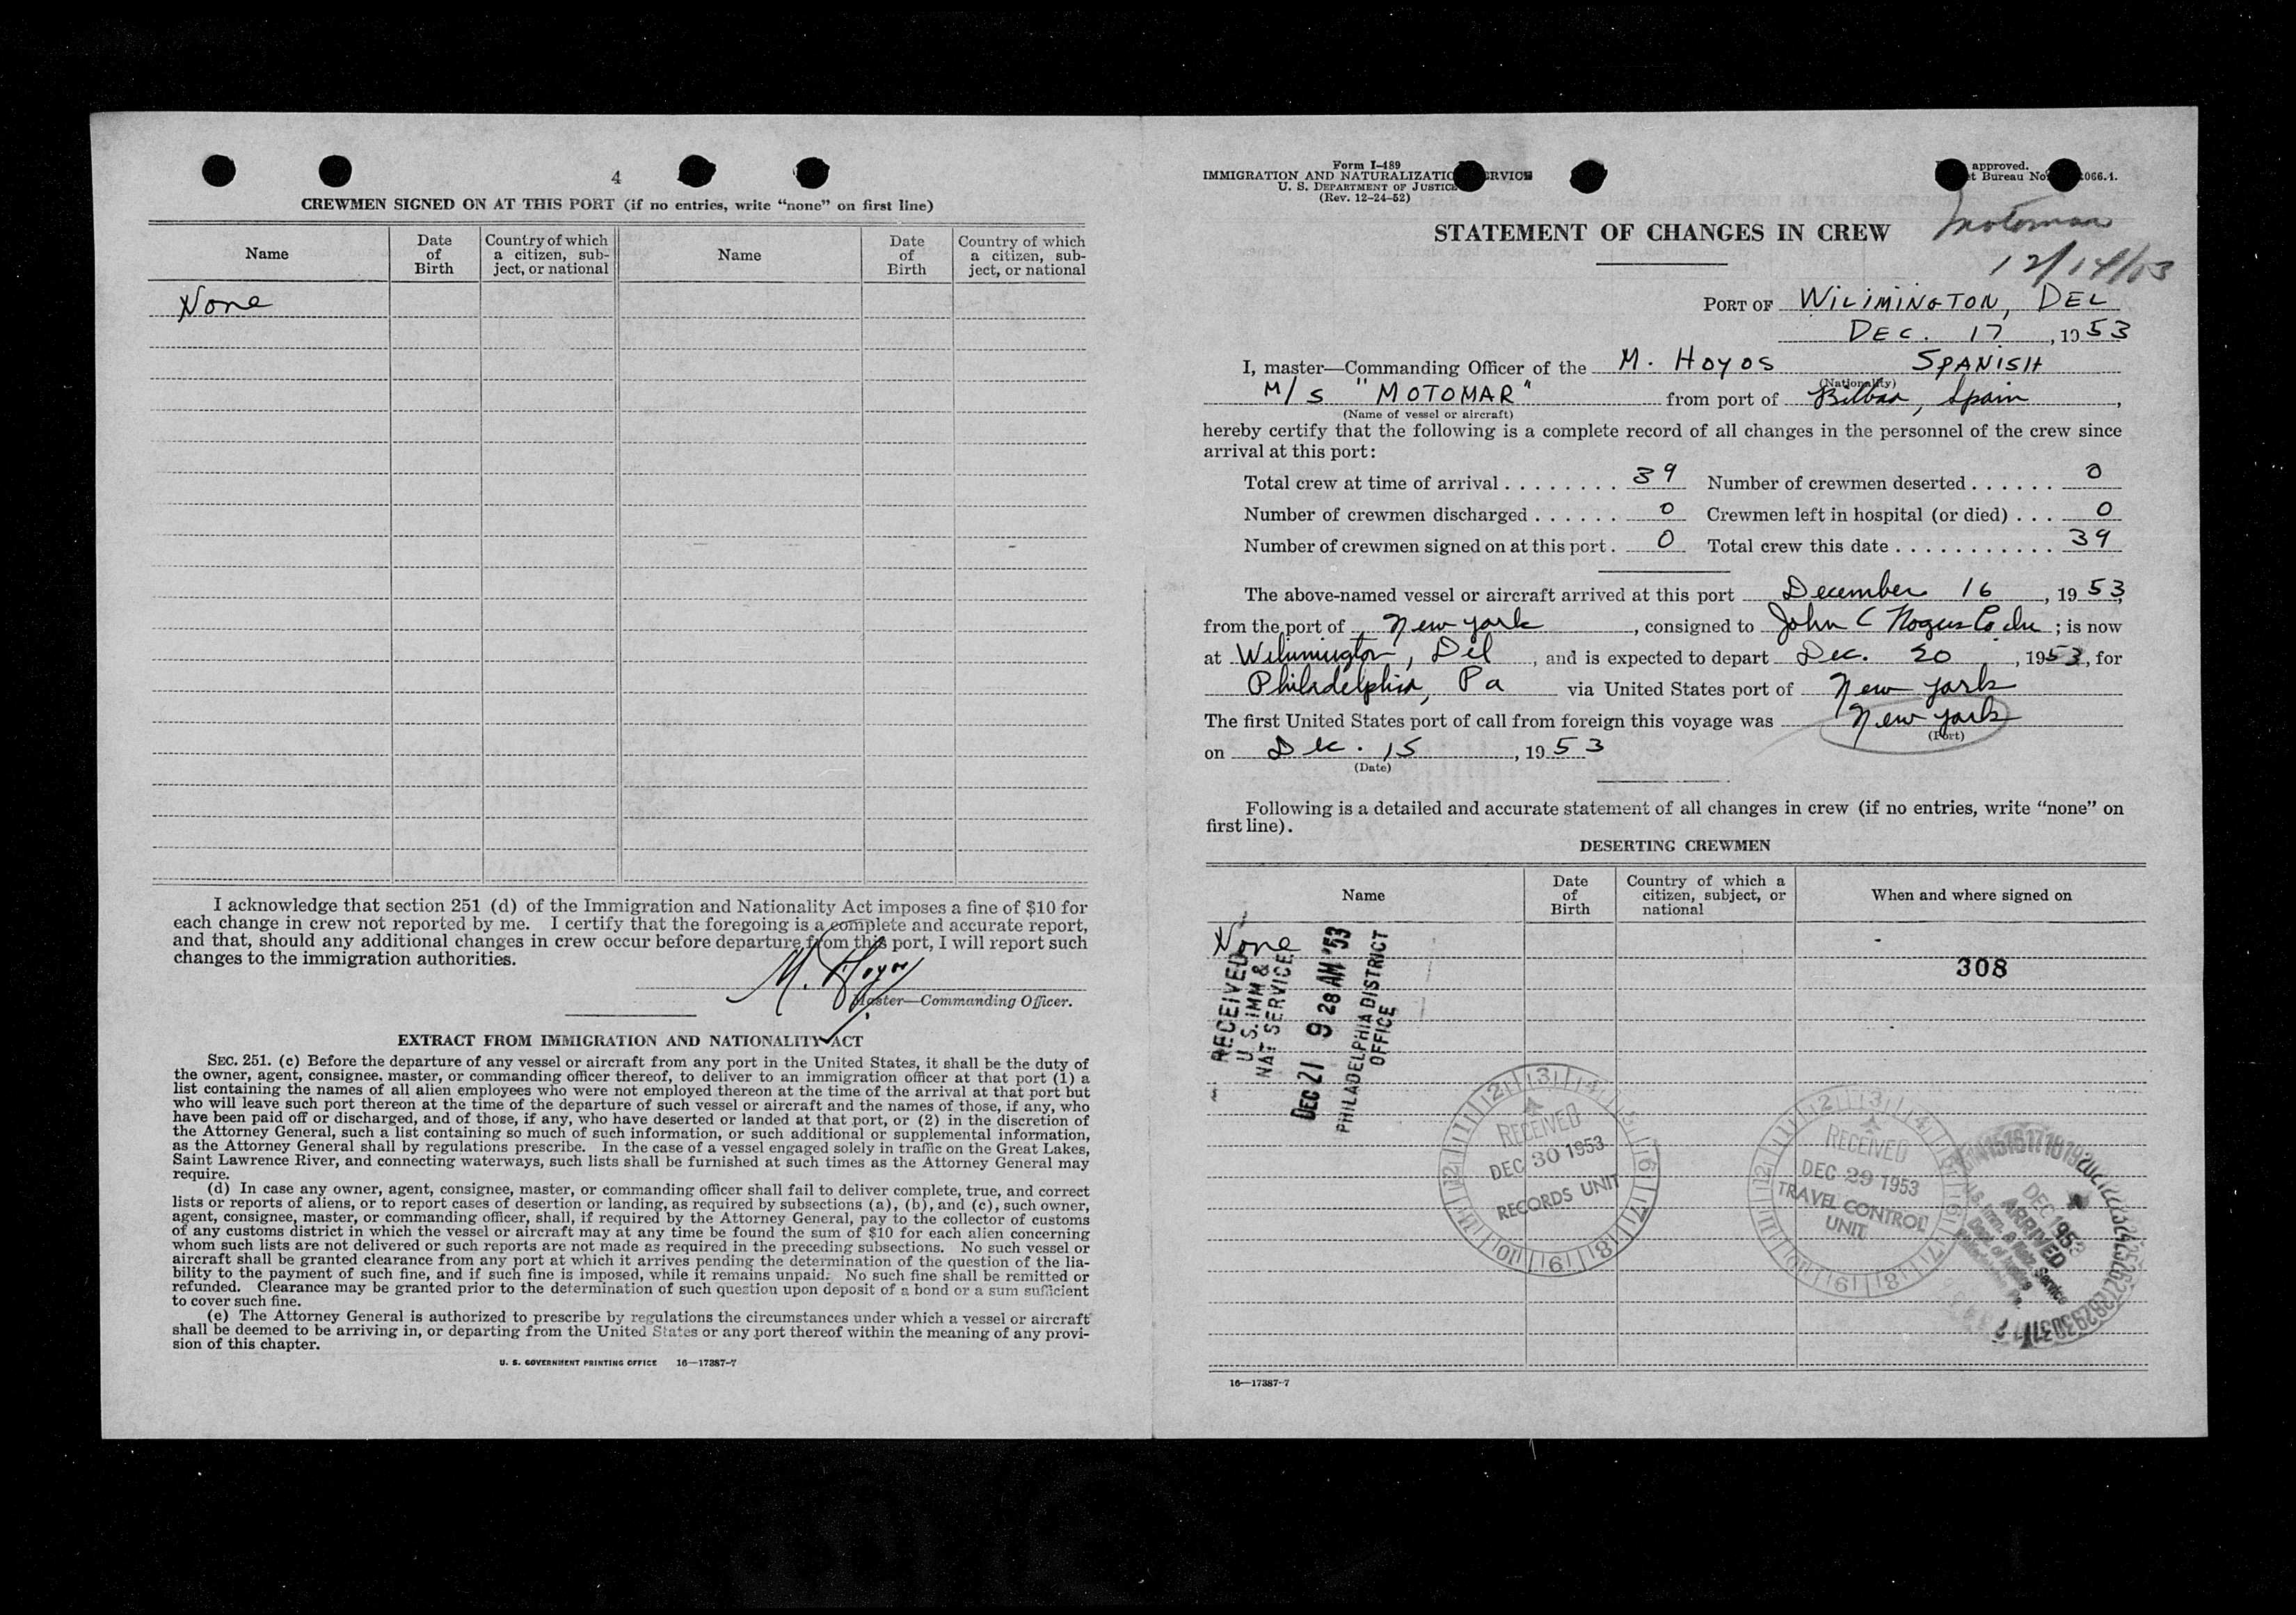 4
CREWMEN SIGNED ON AT THIS PORT (if no entries, write “none” on first line)
Name
Date of Birth
Country of which a citizen, subject, or national
Name
Date of Birth
Country of which a citizen, subject, or national
None
I acknowledge that section 251 (d) of the Immigration and Nationality Act imposes a fine of $10 for
each change in crew not reported by me. I certify that the foregoing is a complete and accurate report,
and that, should any additional changes in crew occur before departure from this port, I will report such
changes to the immigration authorities.
M. Hoyos
Master—Commanding Officer.
EXTRACT FROM IMMIGRATION AND NATIONALITY ACT
SEC. 251. (c) Before the departure of any vessel or aircraft from any port in the United States, it shall be the duty of
the owner, agent, consignee, master, or commanding officer thereof, to deliver to an immigration officer at that port (1) a
list containing the names of all alien employees who were not employed thereon at the time of the arrival at that port but
who will leave such port thereon at the time of the departure of such vessel or aircraft and the names of those, if any, who
have been paid off or discharged, and of those, if any, who have deserted or landed at that port, or (2) in the discretion of
the Attorney General, such a list containing so much of such information, or such additional or supplemental information,
as the Attorney General shall by regulations prescribe. In the case of a vessel engaged solely in traffic on the Great Lakes,
Saint Lawrence River, and connecting waterways, such lists shall be furnished at such times as the Attorney General may
require.
(d) In case any owner, agent, consignee, master, or commanding officer shall fail to deliver complete, true, and correct
lists or reports of aliens, or to report cases of desertion or landing, as required by subsections (a), (b), and (c), such owner,
agent, consignee, master, or commanding officer, shall, if required by the Attorney General, pay to the collector of customs
of any customs district in which the vessel or aircraft may at any time be found the sum of $10 for each alien concerning
whom such lists are not delivered or such reports are not made as required in the preceding subsections. No such vessel or
aircraft shall be granted clearance from any port at which it arrives pending the determination of the question of the lia-
bility to the payment of such fine, and if such fine is imposed, while it remains unpaid. No such fine shall be remitted or
refunded. Clearance may be granted prior to the determination of such question upon deposit of a bond or a sum sufficient
to cover such fine.
(e) The Attorney General is authorized to prescribe by regulations the circumstances under which a vessel or aircraft
shall be deemed to be arriving in, or departing from the United States or any port thereof within the meaning of any provi-
sion of this chapter.
U. S. GOVERNMENT PRINTING OFFICE 16—17387-7
Form I-489
IMMIGRATION AND NATURALIZATION SERVICE
U. S. DEPARTMENT OF JUSTICE
(Rev. 12-24-52)
approved.
Bureau No. 066.1.
Motomar
12/14/53
STATEMENT OF CHANGES IN CREW
PORT OF WILIMINGTON, DEL
DEC. 17, 1953
I, master—Commanding Officer of the M. HOYOS SPANISH
(Nationality)
M/S "MOTOMAR" from port of Bilbao, Spain,
(Name of vessel or aircraft)
hereby certify that the following is a complete record of all changes in the personnel of the crew since
arrival at this port:
Total crew at time of arrival ........ 39 Number of crewmen deserted ...... 0
Number of crewmen discharged ...... 0 Crewmen left in hospital (or died) ... 0
Number of crewmen signed on at this port. 0 Total crew this date ........... 39
The above-named vessel or aircraft arrived at this port December 16, 1953
from the port of New York, consigned to John C ; is now
at Wilmington, Del, and is expected to depart Dec. 20, 1953, for
Philadelphia, Pa via United States port of New York
The first United States port of call from foreign this voyage was New York
(Port)
on Dec. 15, 1953
(Date)
Following is a detailed and accurate statement of all changes in crew (if no entries, write “none” on
first line).
DESERTING CREWMEN
Name
Date of Birth
Country of which a citizen, subject, or national
When and where signed on
None
308
RECEIVED
U. S. IMM &
NAT SERVICE
DEC 21 9 28 AM '53
PHILADELPHIA DISTRICT
OFFICE
RECEIVED
DEC 30 1953
RECORDS UNIT
RECEIVED
DEC 29 1953
TRAVEL CONTROL
UNIT
DEC 1953
ARRIVED
U.S. Imm. & Natz. Service
Dept. of Justice
16—17387-7